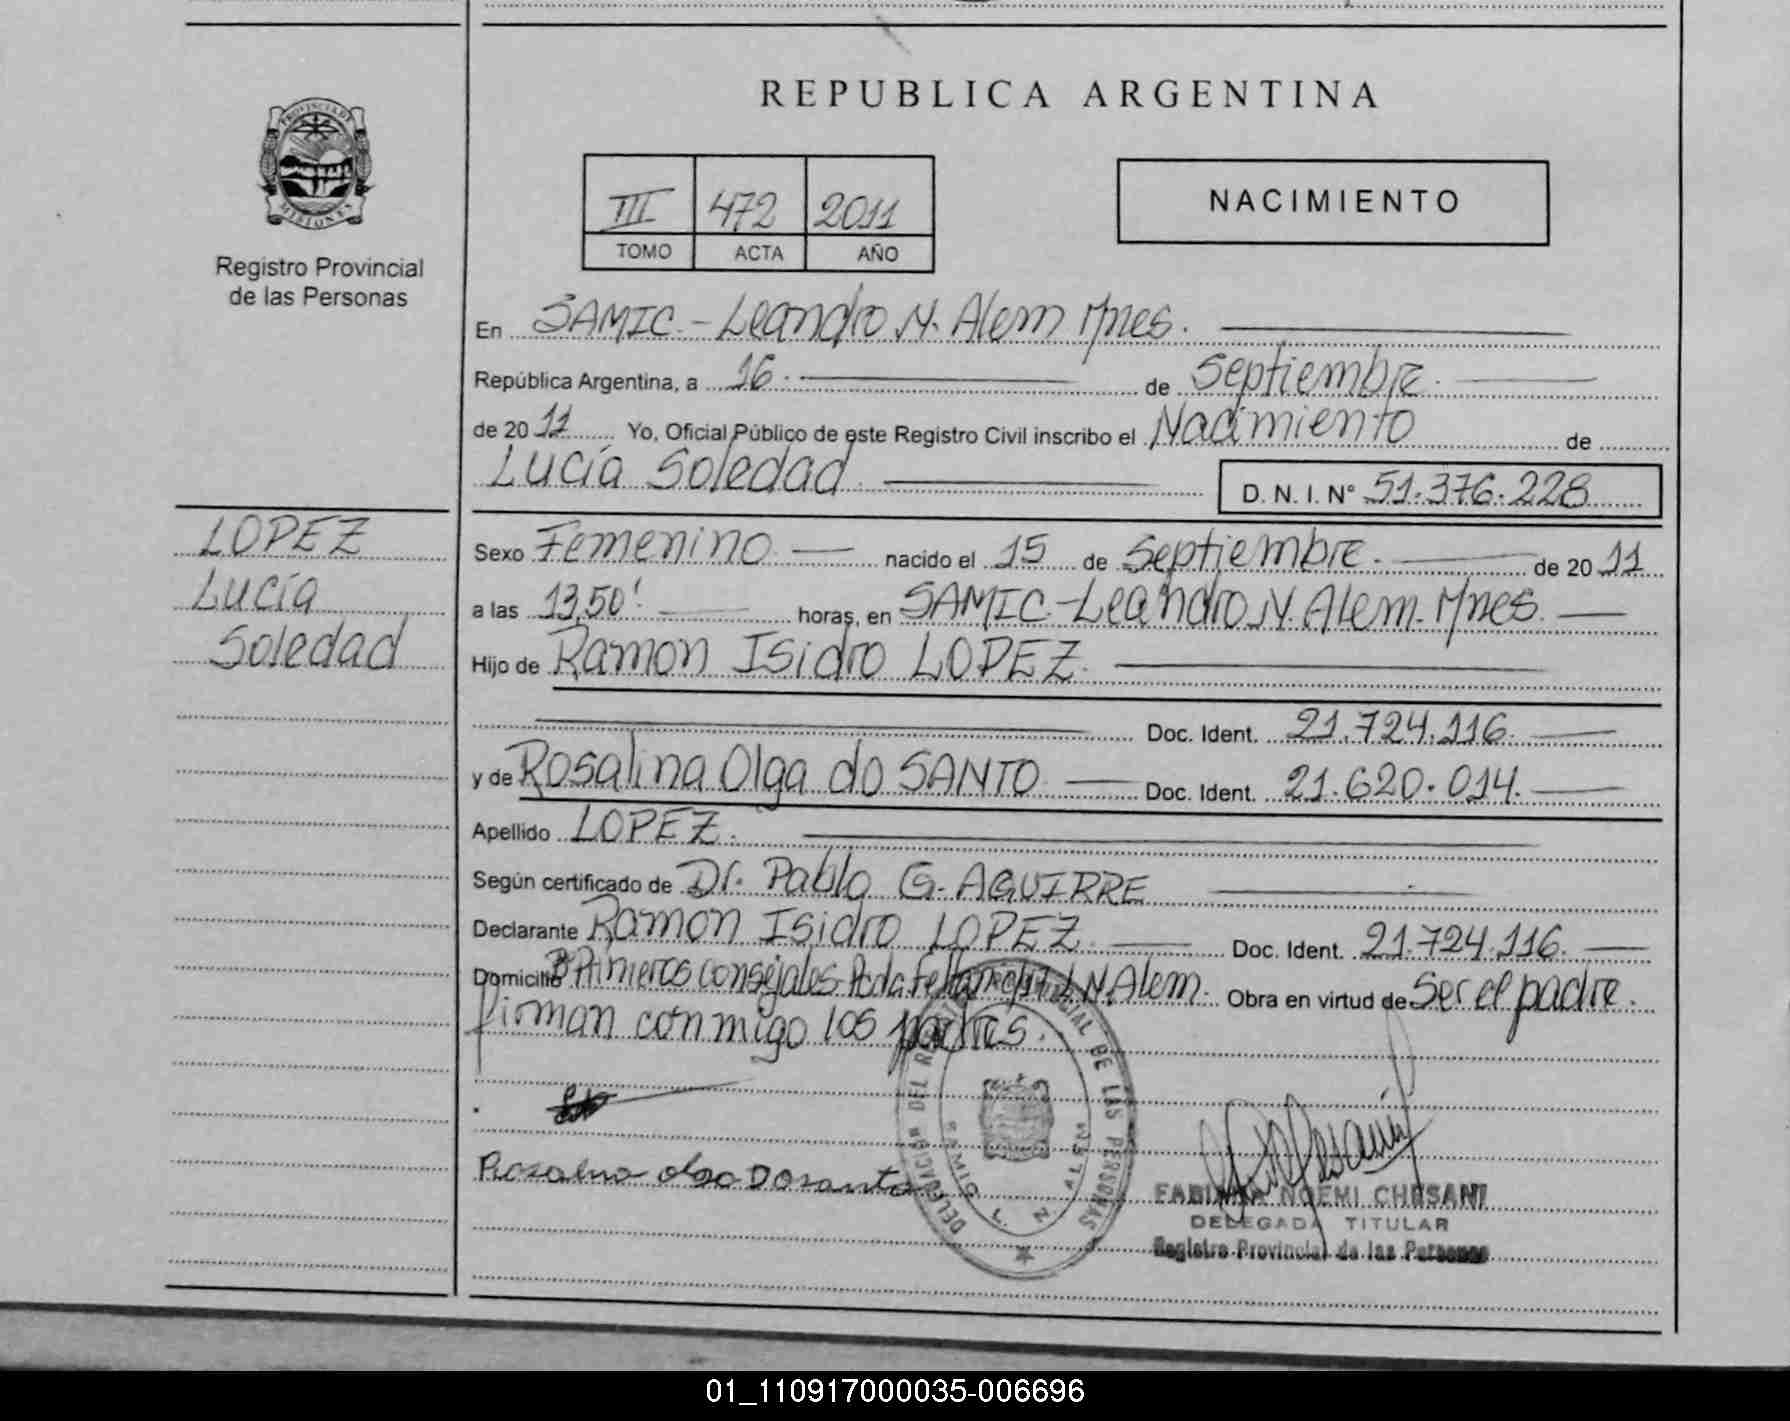 REPUBLICA ARGENTINA
PROVINCIA DE
MISIONES
Registro Provincial
de las Personas
III 472 2011
TOMO ACTA AÑO
NACIMIENTO
En SAMIC.- Leandro N. Alem Mnes.
República Argentina, a 16. de Septiembre.
de 2011 Yo, Oficial Público de este Registro Civil inscribo el Nacimiento de
Lucía Soledad. D. N. I. N° 51.376.228
LOPEZ
Lucía
Soledad
Sexo Femenino nacido el 15 de Septiembre. de 2011
a las 13,50'. horas, en SAMIC.-Leandro N. Alem. Mnes.
Hijo de Ramon Isidro LOPEZ.
Doc. Ident. 21.724.116.
y de Rosalina Olga do SANTO Doc. Ident. 21.620.014.
Apellido LOPEZ.
Según certificado de Dr. Pablo G. AGUIRRE
Declarante Ramon Isidro LOPEZ. Doc. Ident. 21.724.116.
Domicilio Bº Primeros consejales L.N.Alem. Obra en virtud de Ser el padre.
firman conmigo los padres.
DELEGACIÓN DEL REGISTRO PROVINCIAL DE LAS PERSONAS
L. N. ALEM
MISIONES
FABIANA NOEMI
DELEGADA TITULAR
Registro Provincial de las Personas
01_110917000035-006696